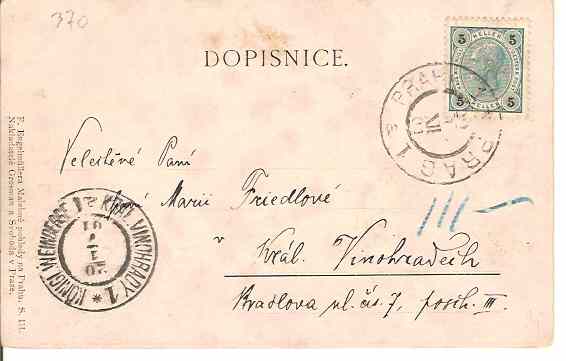 370
DOPISNICE.
5 HELLER 5
5 HELLER 5
PRAG 1
Velectěné Paní
paní Marii Friedlové
v
Král. Vinohradech
Bradlova ul. čís. 7, posch. III.
KÖNIGL. WEINBERGE 1 * KRÁL. VINOHRADY 1 *
F. Engelmüllera Malebné pohledy na Prahu. S. III.
Nakladatelé Grosman a Svoboda v Praze.